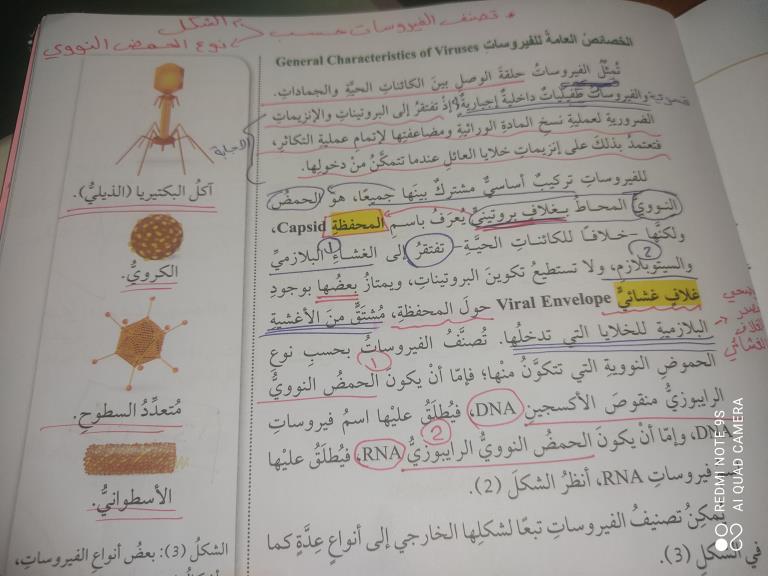 * تصنف الفيروسات حسب الشكل
نوع الحمض النووي
الخصائص العامة للفيروسات General Characteristics of Viruses
تُمثّلُ الفيروساتُ حلقةَ الوصلِ بينَ الكائناتِ الحيّةِ والجماداتِ.
والفيروساتُ طفيلياتٌ داخليةٌ إجباريةٌ؛ إذْ تفتقرُ إلى البروتيناتِ والإنزيماتِ
الضروريةِ لعمليةِ نسخِ المادةِ الوراثيةِ ومضاعفتِها لإتمامِ عمليةِ التكاثرِ،
فتعتمدُ بذلكَ على إنزيماتِ خلايا العائلِ عندما تتمكَّنُ منْ دخولِها.
للفيروساتِ تركيبٌ أساسيٌّ مشتركٌ بينَها جميعًا، هوَ الحمضُ
النوويُّ المحاطُ بغلافٍ بروتينيٍّ يُعرَفُ باسمِ المحفظةِ Capsid،
ولكنَّها -خلافًا للكائناتِ الحيَّةِ- تفتقرُ إلى الغشاءِ البلازميِّ
والسيتوبلازمِ، ولا تستطيعُ تكوينَ البروتيناتِ، ويمتازُ بعضُها بوجودِ
غلافٍ غشائيٍّ Viral Envelope حولَ المحفظةِ، مُشتَقٍّ منَ الأغشيةِ
البلازميةِ للخلايا التي تدخلُها. تُصنَّفُ الفيروساتُ بحسبِ نوعِ
الحموضِ النوويةِ التي تتكوَّنُ منْها؛ فإمّا أنْ يكونَ الحمضُ النوويُّ
الرايبوزيُّ منقوصَ الأكسجينِ DNA، فيُطلَقُ عليْها اسمُ فيروساتِ
DNA، وإمّا أنْ يكونَ الحمضُ النوويُّ الرايبوزيُّ RNA، فيُطلَقُ عليْها
فيروساتِ RNA، أنظرُ الشكلَ (2).
يُمكِنُ تصنيفُ الفيروساتِ تبعًا لشكلِها الخارجي إلى أنواعٍ عِدَّةٍ كما
في الشكلِ (3).
1
2
1
2
آكلُ البكتيريا (الذيليُّ).
الكرويُّ.
مُتعدِّدُ السطوحِ.
الأسطوانيُّ.
الشكلُ (3): بعضُ أنواعِ الفيروساتِ،
REDMI NOTE 9S
AI QUAD CAMERA